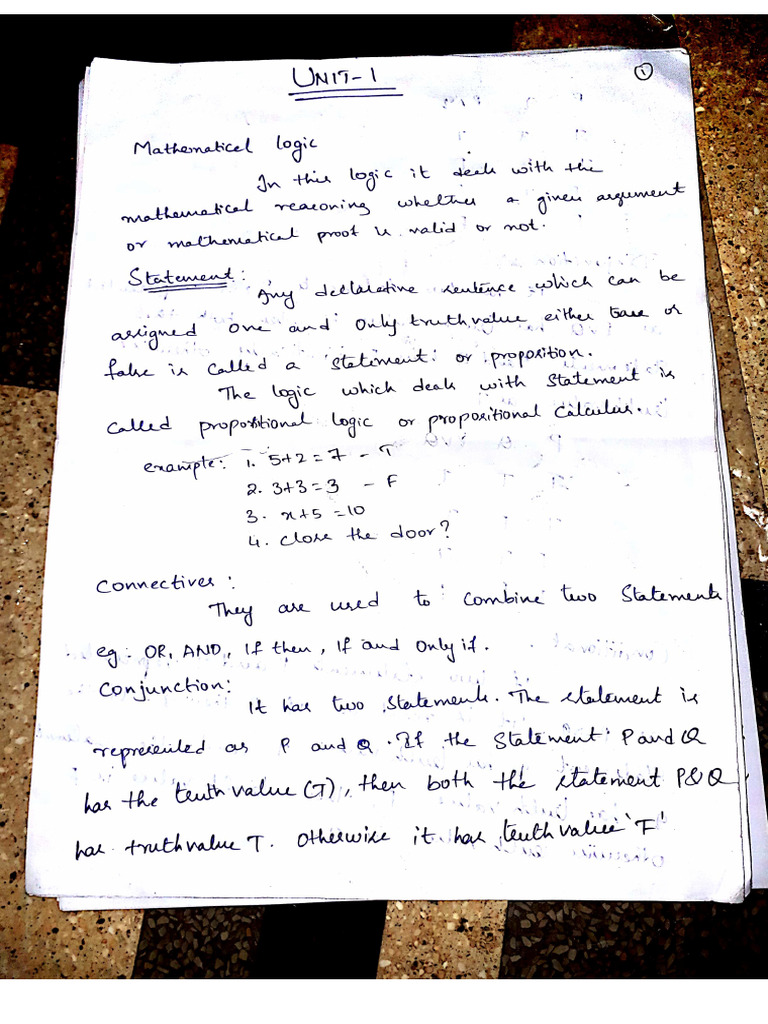 UNIT-1
1
Mathematical logic
In this logic it deals with the
mathematical reasoning whether a given argument
or mathematical proof is valid or not.
Statement:
Any declarative sentence which can be
assigned one and only truth value either true or
false is called a statement: or proposition.
The logic which deals with statement is
called propositional logic or propositional calculus.
example: 1. 5+2=7 - T
2. 3+3=3 - F
3. x+5=10
4. close the door?
Connectives:
They are used to combine two statements
eg: OR, AND, If then, If and only if.
Conjunction:
It has two statements. The statement is
represented as P and Q. If the statement: P and Q
has the truth value (T), then both the statement P&Q
has truth value T. Otherwise it has truth value 'F'